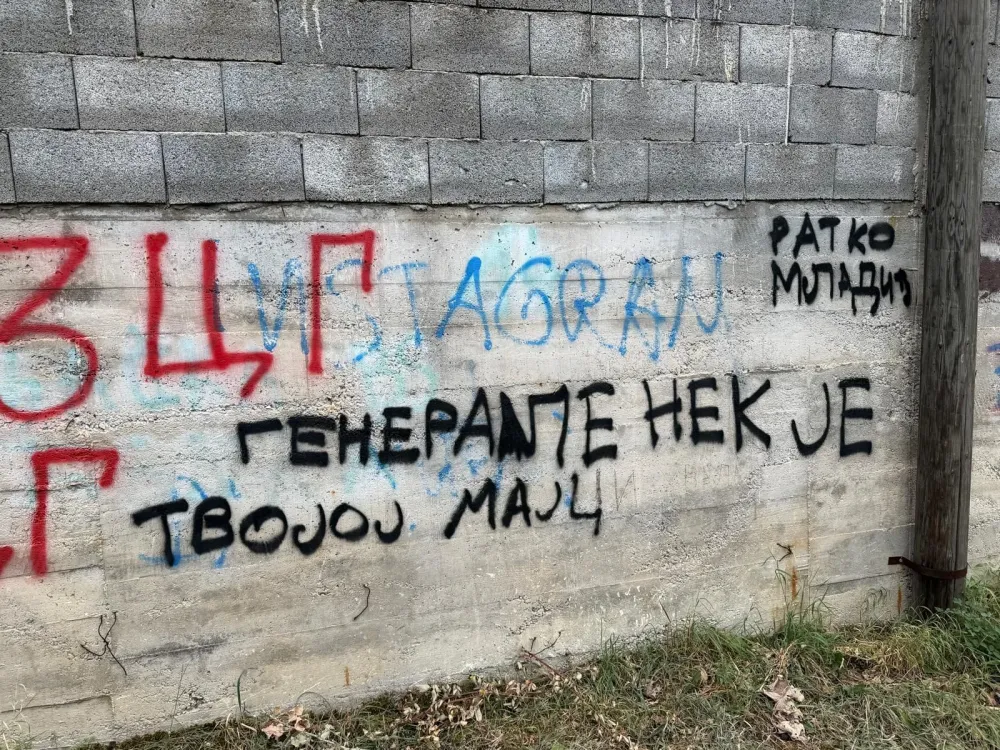 ЗЦГ
INSTAGRAM
РАТКО
МЛАДИЋ
Г ГЕНЕРАЛЕ НЕК ЈЕ
ТВОЈОЈ МАЈЦИ
Г